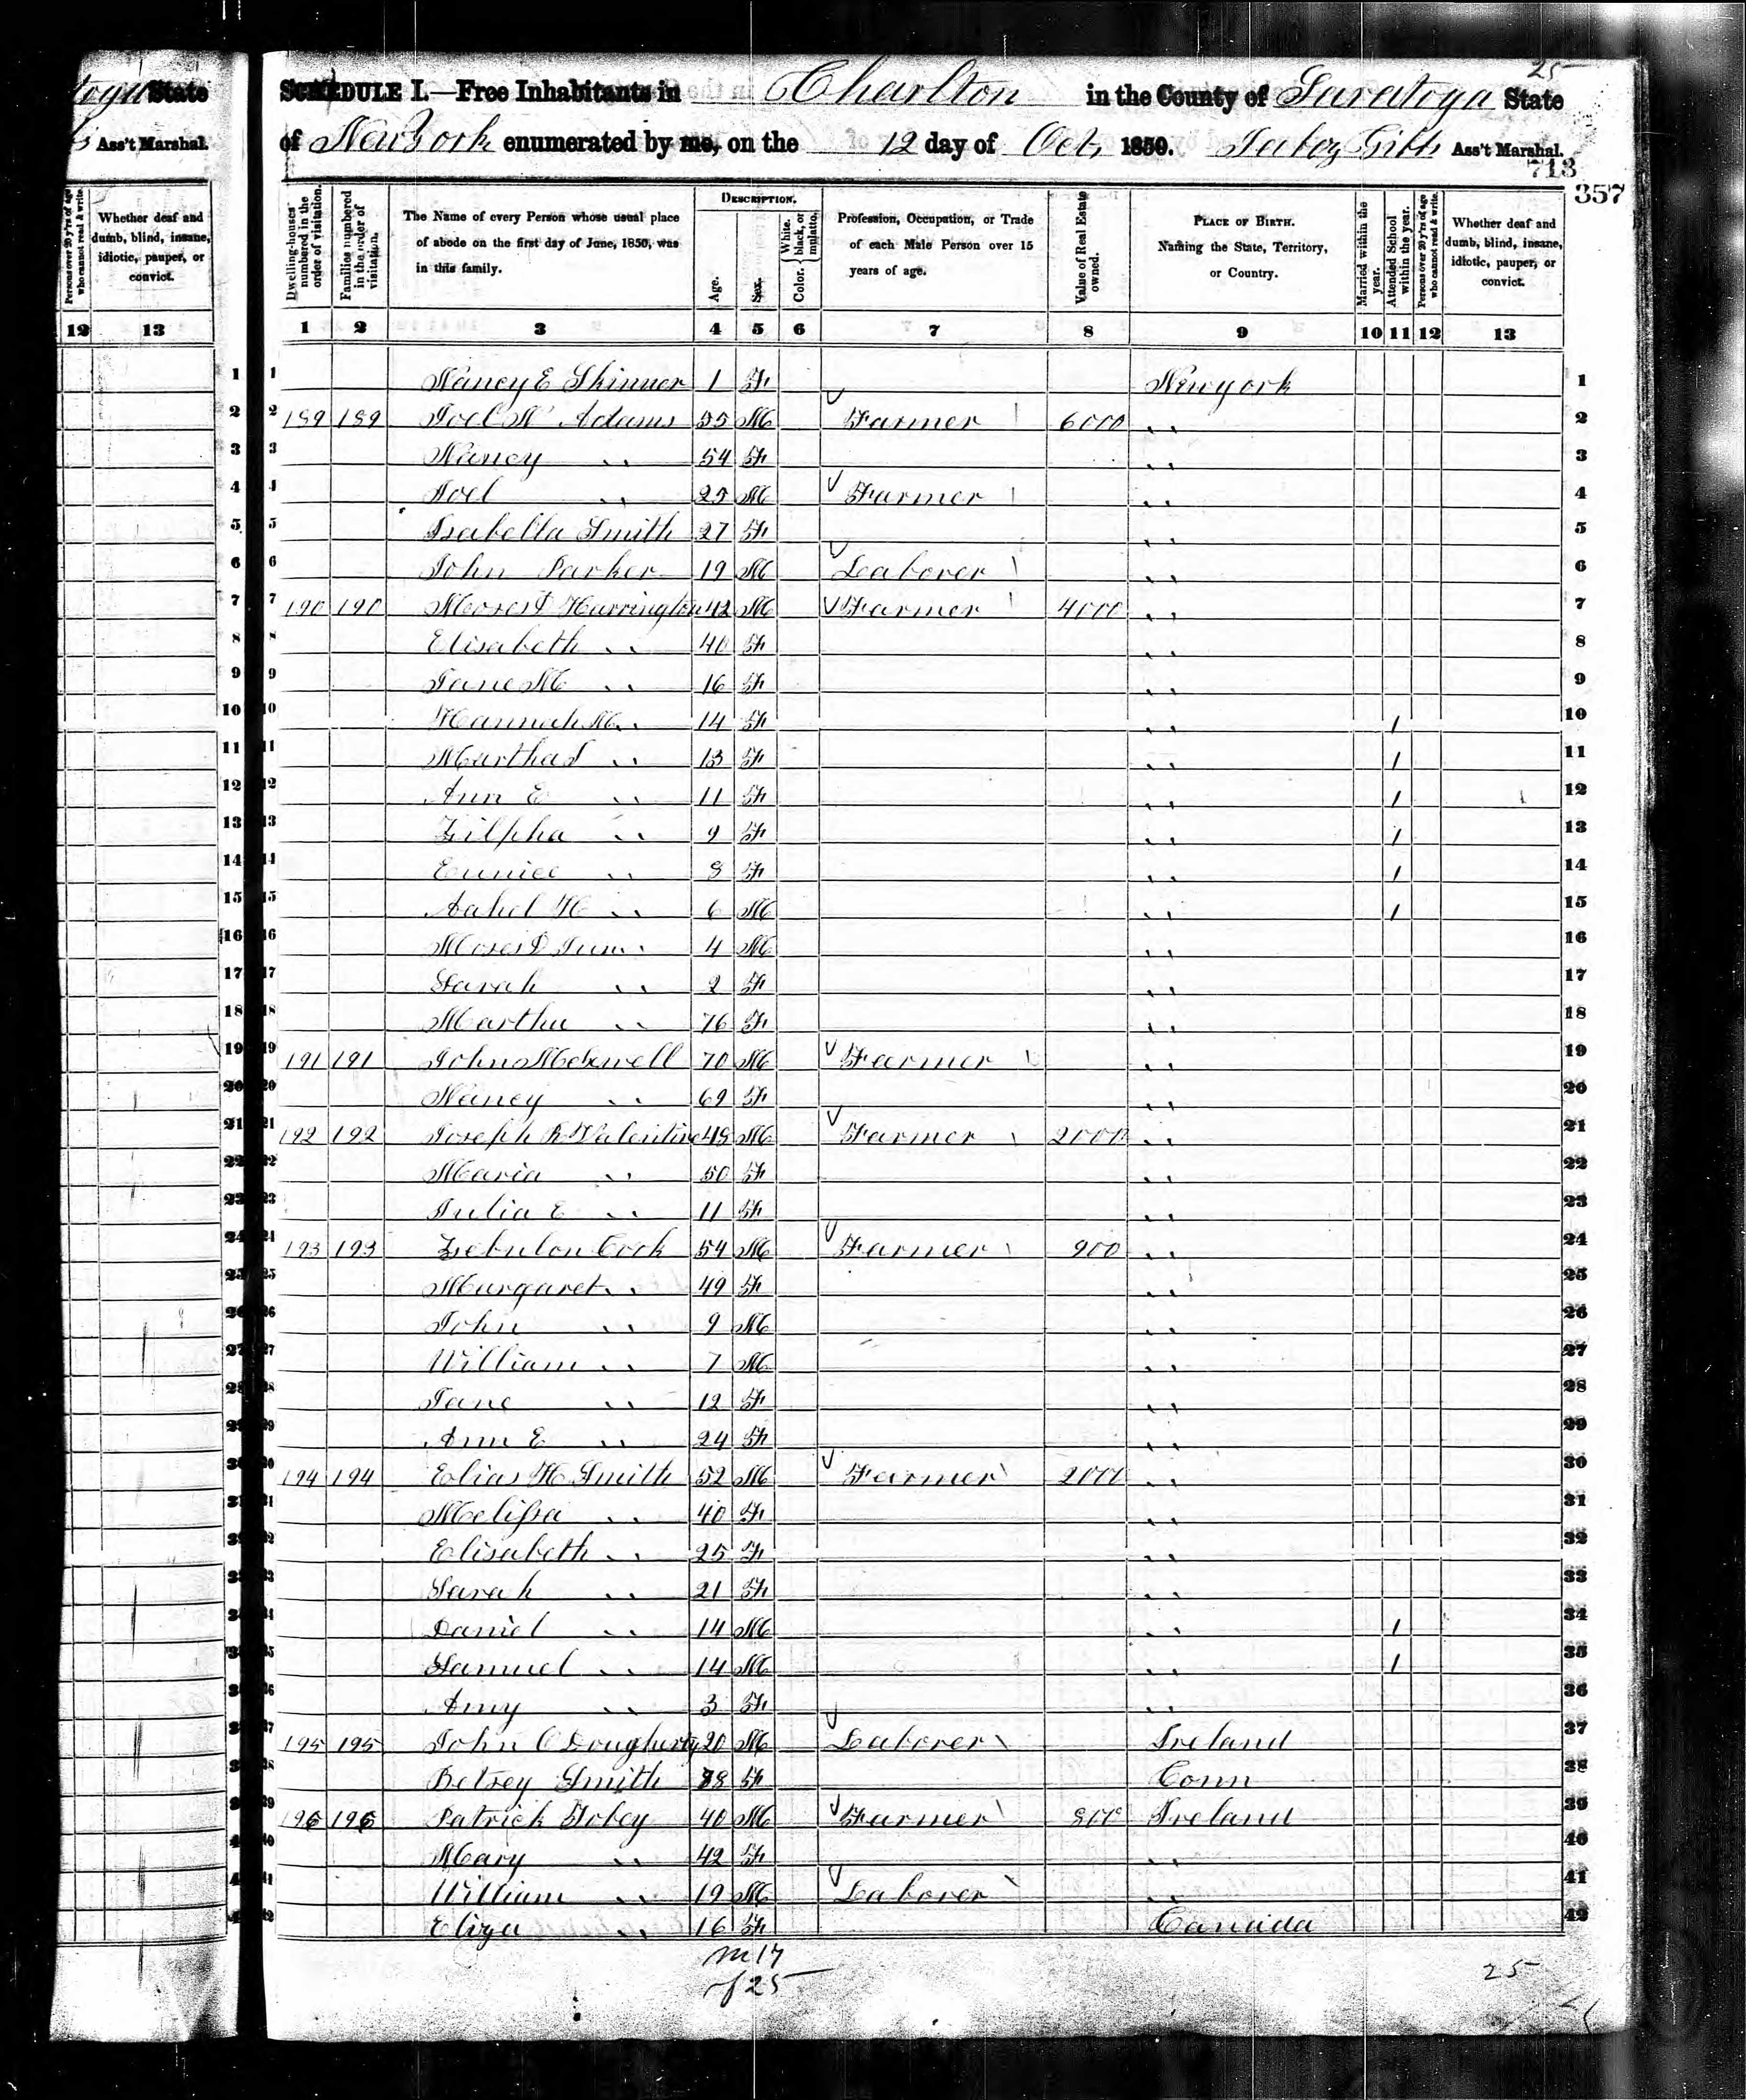 25
toga State
Ass't Marshal.
SCHEDULE I.—Free Inhabitants in Charlton in the County of Saratoga State
of New York enumerated by me, on the 12 day of Oct, 1850. Gibbs Ass't Marshal.
713
357
Persons over 20 y'rs of age who cannot read & write
Whether deaf and dumb, blind, insane, idiotic, pauper, or convict.
12 13
Dwelling-houses numbered in the order of visitation.
Families numbered in the order of visitation.
The Name of every Person whose usual place of abode on the first day of June, 1850, was in this family.
DESCRIPTION.
Age.
Sex.
Color. White, black, or mulatto.
Profession, Occupation, or Trade of each Male Person over 15 years of age.
Value of Real Estate owned.
PLACE OF BIRTH. Naming the State, Territory, or Country.
Married within the year.
Attended School within the year.
Persons over 20 y'rs of age who cannot read & write.
Whether deaf and dumb, blind, insane, idiotic, pauper, or convict.
1 2 3 4 5 6 7 8 9 10 11 12 13
1 Nancy E Skinner 1 F New york 1
2 189 189 Joel W Adams 55 M Farmer 6000 " 2
3 Nancy " 54 F " 3
4 Joel " 25 M Farmer " 4
5 Isabella Smith 27 F " 5
6 John Parker 19 M Laborer " 6
7 190 190 Moses D Harrington 42 M Farmer 4000 " 7
8 Elisabeth " 40 F " 8
9 Jane M " 16 F " 9
10 Hannah M " 14 F " 1 10
11 Martha S " 13 F " 1 11
12 Ann E " 11 F " 1 12
13 Zilpha " 9 F " 1 13
14 Eunice " 8 F " 1 14
15 Asahel H " 6 M " 1 15
16 Moses D Jun " 4 M " 16
17 Sarah " 2 F " 17
18 Martha " 76 F " 18
19 191 191 John 70 M Farmer " 19
20 Nancy " 69 F " 20
21 192 192 Joseph R Valentine 48 M Farmer 2000 " 21
22 Maria " 50 F " 22
23 Julia E " 11 F " 23
24 193 193 Zebulon Cock 54 M Farmer 900 " 24
25 Margaret " 49 F " 25
26 John " 9 M " 26
27 William " 7 M " 27
28 Jane " 12 F " 28
29 Ann E " 24 F " 29
30 194 194 Elias H Smith 52 M Farmer 2000 " 30
31 Melissa " 40 F " 31
32 Elisabeth " 25 F " 32
33 Sarah " 21 F " 33
34 Daniel " 14 M " 1 34
35 Samuel " 14 M " 1 35
36 Amy " 3 F " 36
37 195 195 John O Dougherty 20 M Laborer Ireland 37
38 Betsey Smith 88 F Conn 38
39 196 196 Patrick Tobey 40 M Farmer 800 Ireland 39
40 Mary " 42 F " 40
41 William " 19 M Laborer " 41
42 Eliza " 16 F Canada 42
m 17
f 25
25